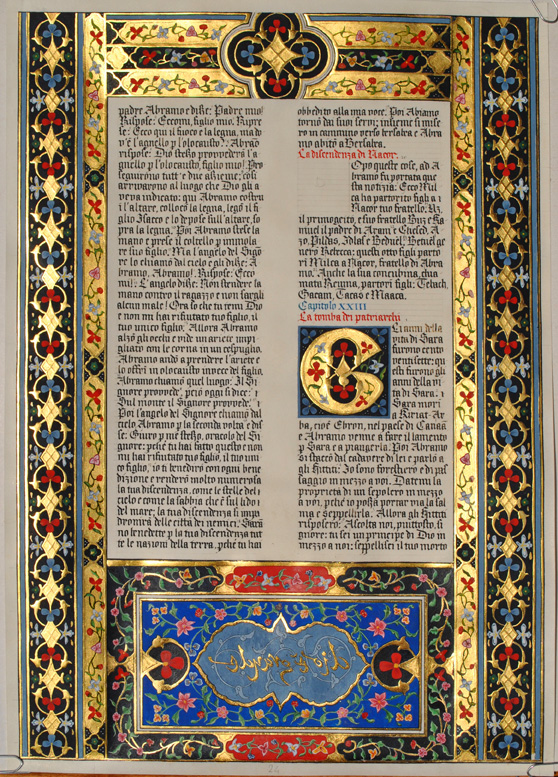 padre Abramo e disse: Padre mio!
Rispose: Eccomi, figlio mio. Ripre
se: Ecco qui il fuoco e la legna, ma do
v'è l'agnello p l'olocausto? Abrão
rispose: Dio stesso provvederà l'a
gnello p l'olocausto, figlio mio! Pro
seguirono tutt'e due assieme; così
arrivarono al luogo che Dio gli a
veva indicato; qui Abramo costruì
l'altare, collocò la legna, legò il fi
glio Isacco e lo depose sull'altare, so
pra la legna. Poi Abramo stese la
mano e prese il coltello p immola
re suo figlio. Ma l'angelo del Signo
re lo chiamò dal cielo e gli disse: A
bramo, Abramo! Rispose: Ecco
mi! L'angelo disse: Non stendere la
mano contro il ragazzo e non fargli
alcun male! Ora so che tu temi Dio
e non mi hai rifiutato tuo figlio, il
tuo unico figlio. Allora Abramo
alzò gli occhi e vide un ariete impi
gliato con le corna in un cespuglio.
Abramo andò a prendere l'ariete e
lo offrì in olocausto invece del figlio.
Abramo chiamò quel luogo: Il Si
gnore provvede, pciò oggi si dice:
Sul monte il Signore provvede.
Poi l'angelo del Signore chiamò dal
cielo Abramo p la seconda volta e dis
se: Giuro p me stesso, oracolo del Si
gnore: pché tu hai fatto questo e non
mi hai rifiutato tuo figlio, il tuo uni
co figlio, io ti benedirò con ogni bene
dizione e renderò molto numerosa
la tua discendenza, come le stelle del
cielo e come la sabbia che è sul lido
del mare; la tua discendenza si imp
dronirà delle città dei nemici. Sarã
no benedette p la tua discendenza tut
te le nazioni della terra, pché tu hai
obbedito alla mia voce. Poi Abramo
tornò dai suoi servi; insieme si mise
ro in cammino verso Bersabea e Abra
mo abitò a Bersabea.
La discendenza di Nacor.
Dopo queste cose, ad A
bramo fu portata que
sta notizia: Ecco Mil
ca ha partorito figli a
Nacor tuo fratello: Uz,
il primogenito, e suo fratello Buz e Ka
muel il padre di Aram e Chesed, A
zo, Pildas, Idlaf e Betuel. Betuel ge
nerò Rebecca: questi otto figli partorì
Milca a Nacor, fratello di Abra
mo. Anche la sua concubina, chia
mata Reuma, partorì figli: Tebach,
Gacam, Tacas e Maaca.
Capitolo XXIII
La tomba dei patriarchi
Gli anni della
vita di Sara
furono cento
ventisette: qu
esti furono gli
anni della vi
ta di Sara.
Sara morì
a Kiriat-Ar
ba, cioè Ebron, nel paese di Canaã
e Abramo venne a fare il lamento
p Sara e a piangerla. Poi Abramo
si staccò dal cadavere di lei e parlò a
gli Hittiti: Io sono forestiero e di pas
saggio in mezzo a voi. Datemi la
proprietà di un sepolcro in mezzo
a voi, pché io possa portar via la sal
ma e seppellirla. Allora gli Hittiti
risposero: Ascolta noi, piuttosto, si
gnore: tu sei un principe di Dio in
mezzo a noi: seppellisci il tuo morto